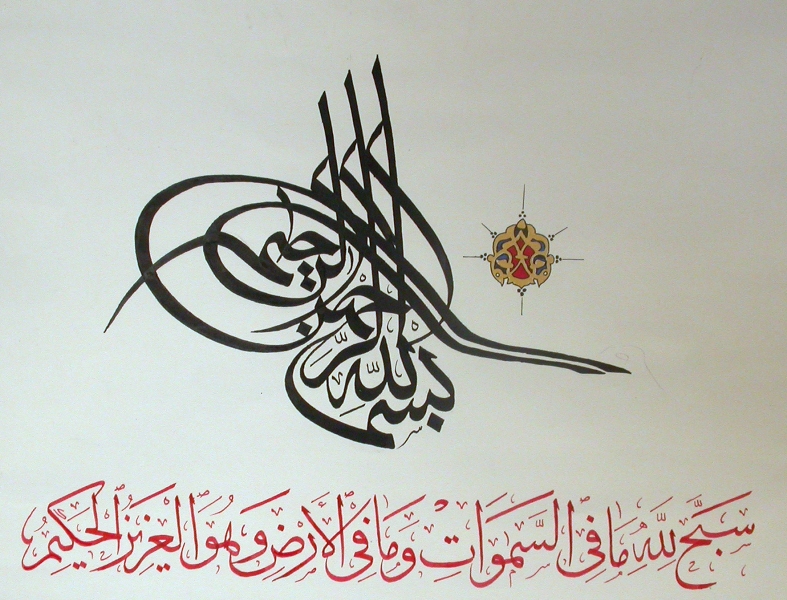 بسم الله الرحمن الرحيم
سَبَّحَ لِلَّهِ مَا فِي السَّمَوَاتِ وَمَا فِي الْأَرْضِ وَهُوَ الْعَزِيزُ الْحَكِيمُ